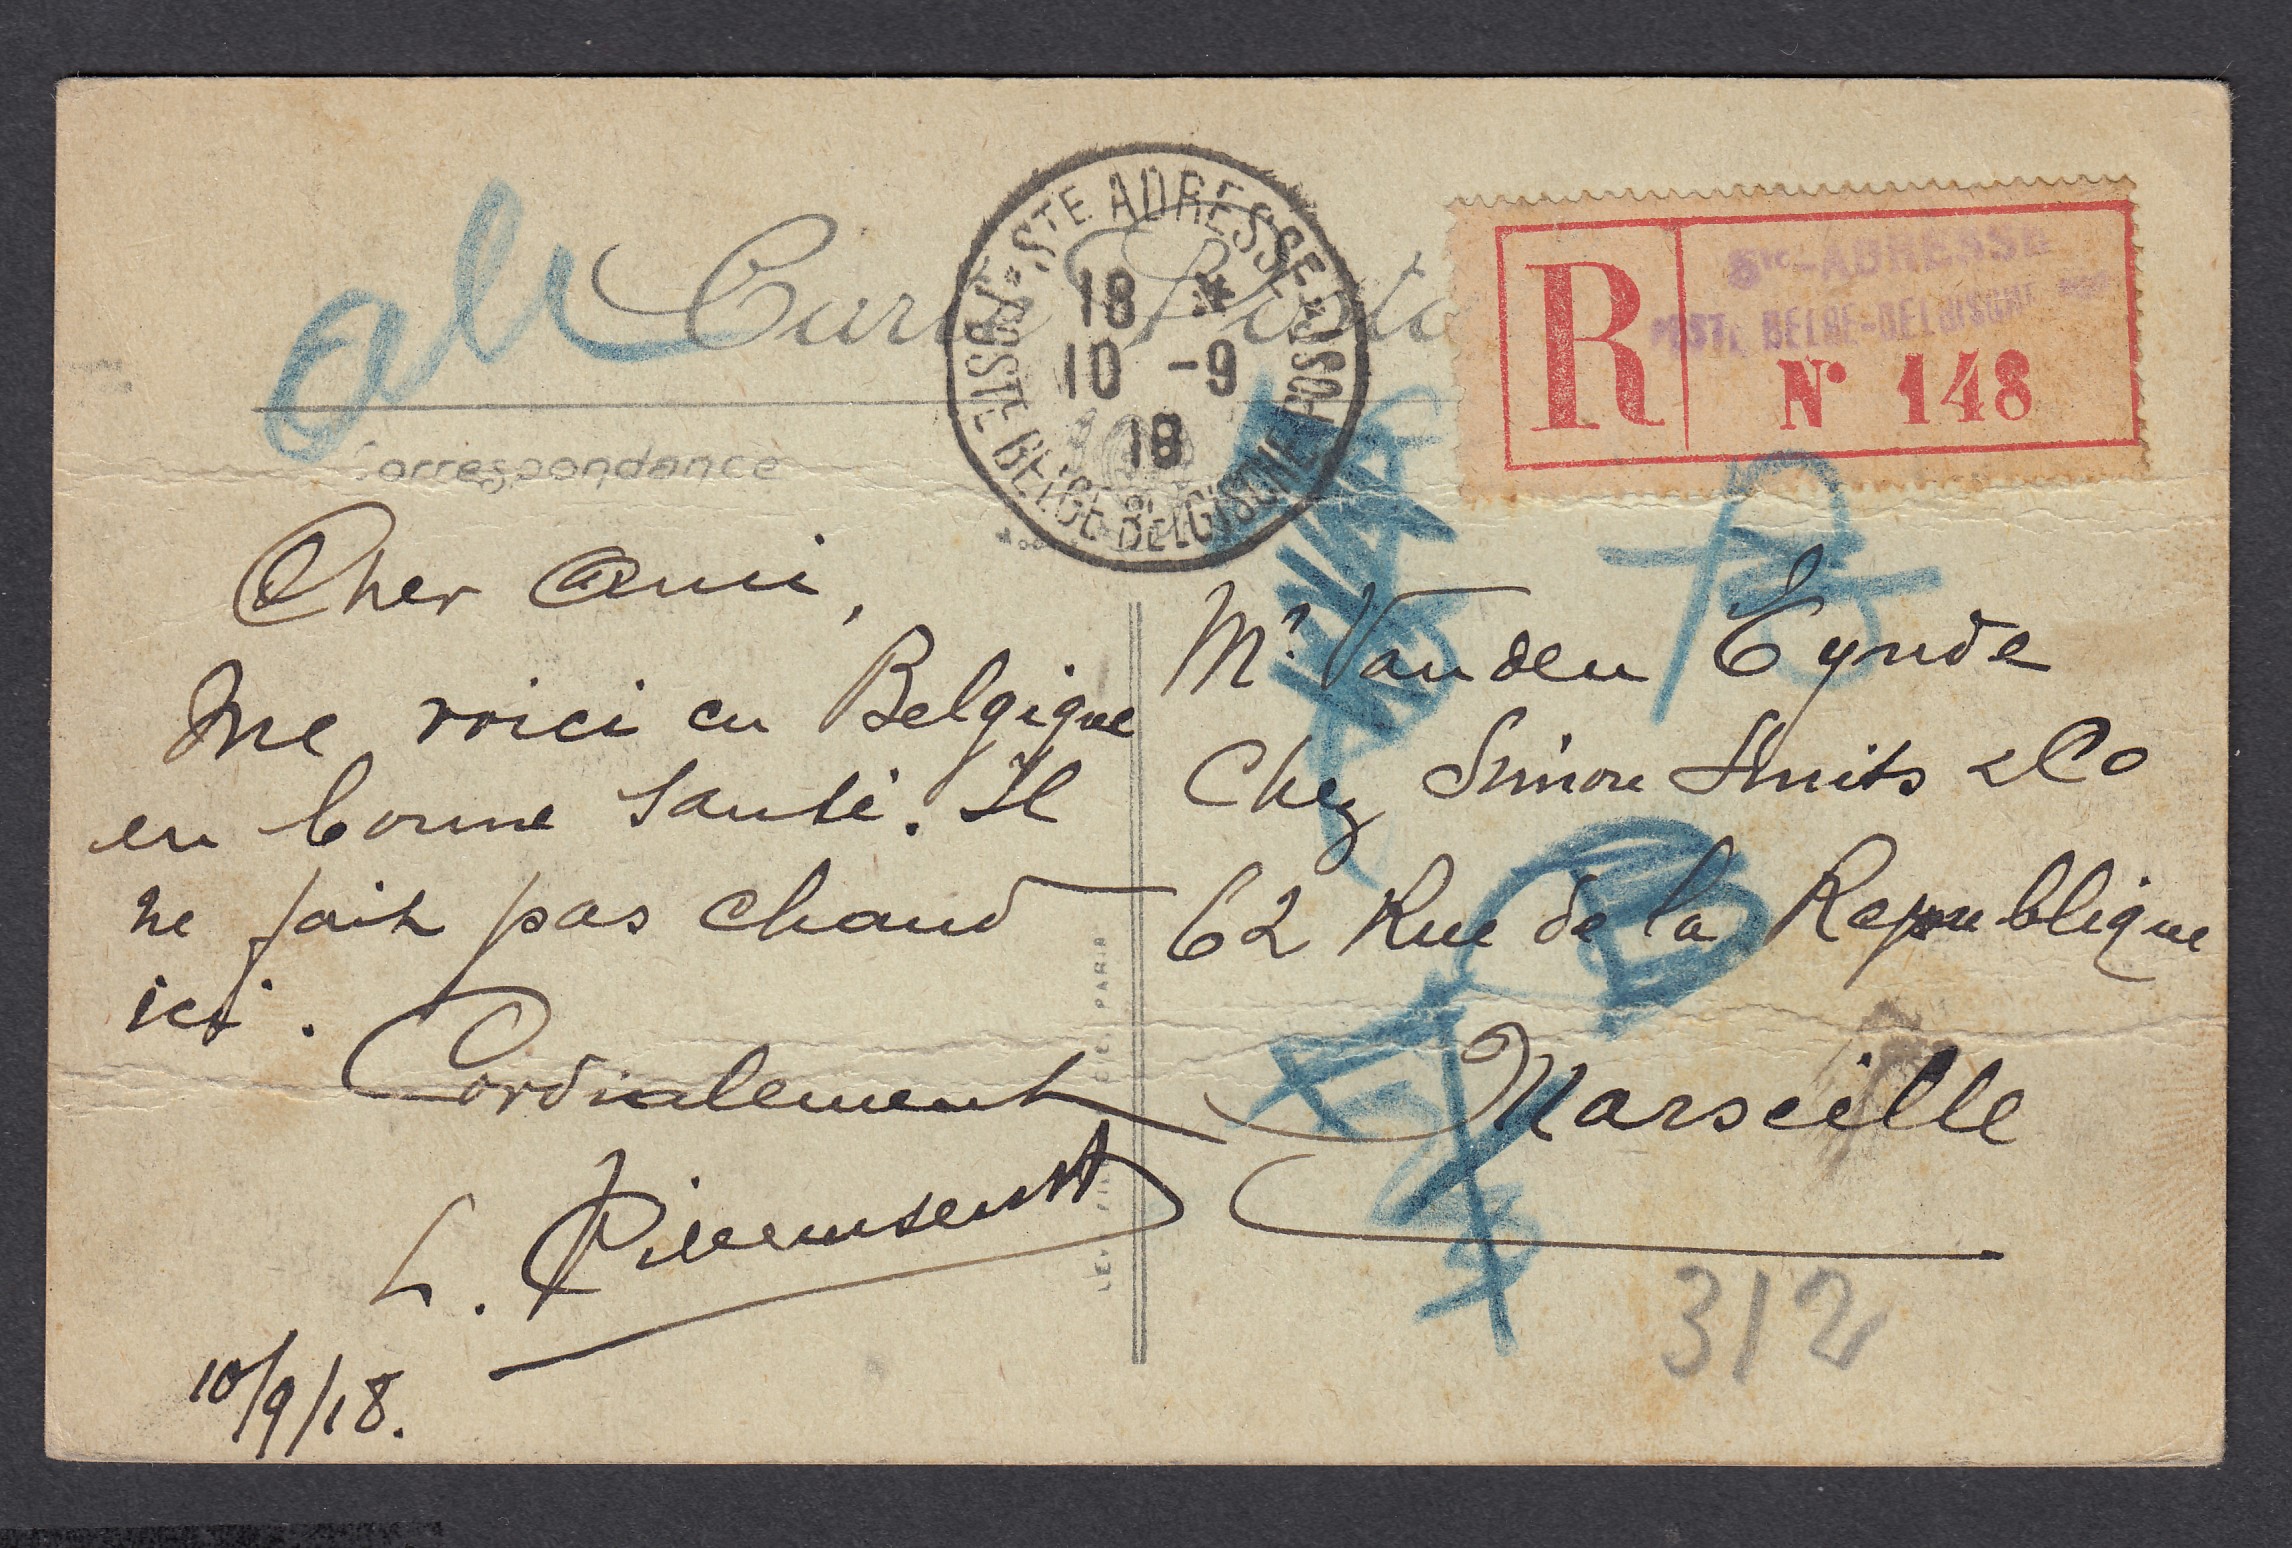 Carte Posta
Correspondance
STE ADRESSE
POSTE BELGE-BELGISCHE POST
18 *
10 -9
18
R
STE-ADRESSE
POSTE BELGE-BELGISCHE POST
N° 148
Cher Ami,
Me voici en Belgique
en bonne santé. Il
ne fait pas chaud
ici.
Cordialement
L.
10/9/18.
Mr. Vanden Eynde
Chez Simon Smits & Co
62 Rue de la Republique
Marseille
312
PARIS